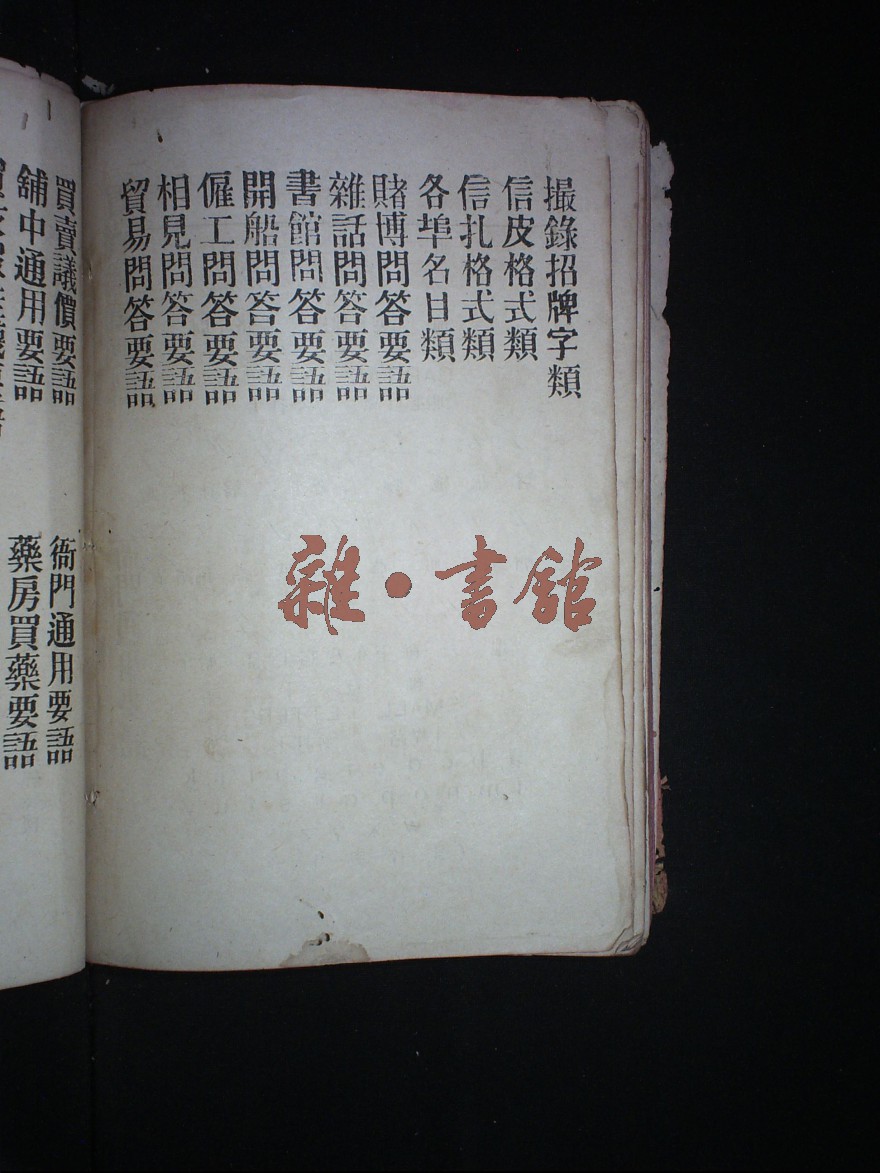 撮錄招牌字類
信皮格式類
信扎格式類
各埠名目類
賭博問答要語
雜話問答要語
書館問答要語
開船問答要語
僱工問答要語
相見問答要語
貿易問答要語
買賣議價要語
衙門通用要語
舖中通用要語
藥房買藥要語
雜·書館